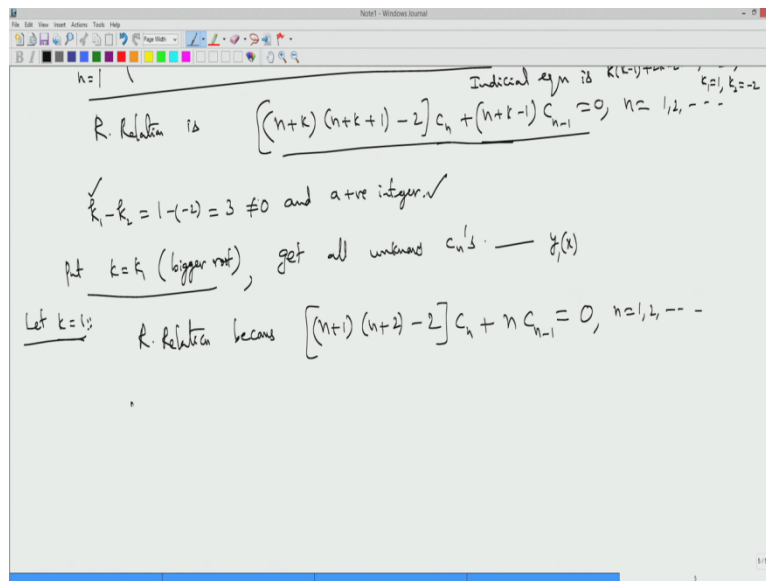 Note1 - Windows Journal
File Edit View Insert Actions Tools Help
Page Width
n=1
Indicial eqn is k(k-1)+2k-2
k₁=1, k₂=-2
R. Relation is [(n+k)(n+k+1)-2]cₙ+(n+k-1)Cₙ₋₁=0, n= 1,2, - - -
k₁-k₂ = 1-(-2) = 3 ≠0 and a +ve integer. ✓
Put k=k₁ (bigger root), get all unknown cₙ's. — y₁(x)
Let k=1:: R. Relation becoms [(n+1)(n+2)-2]cₙ + n cₙ₋₁ = 0, n=1,2, - - -
5/5
5